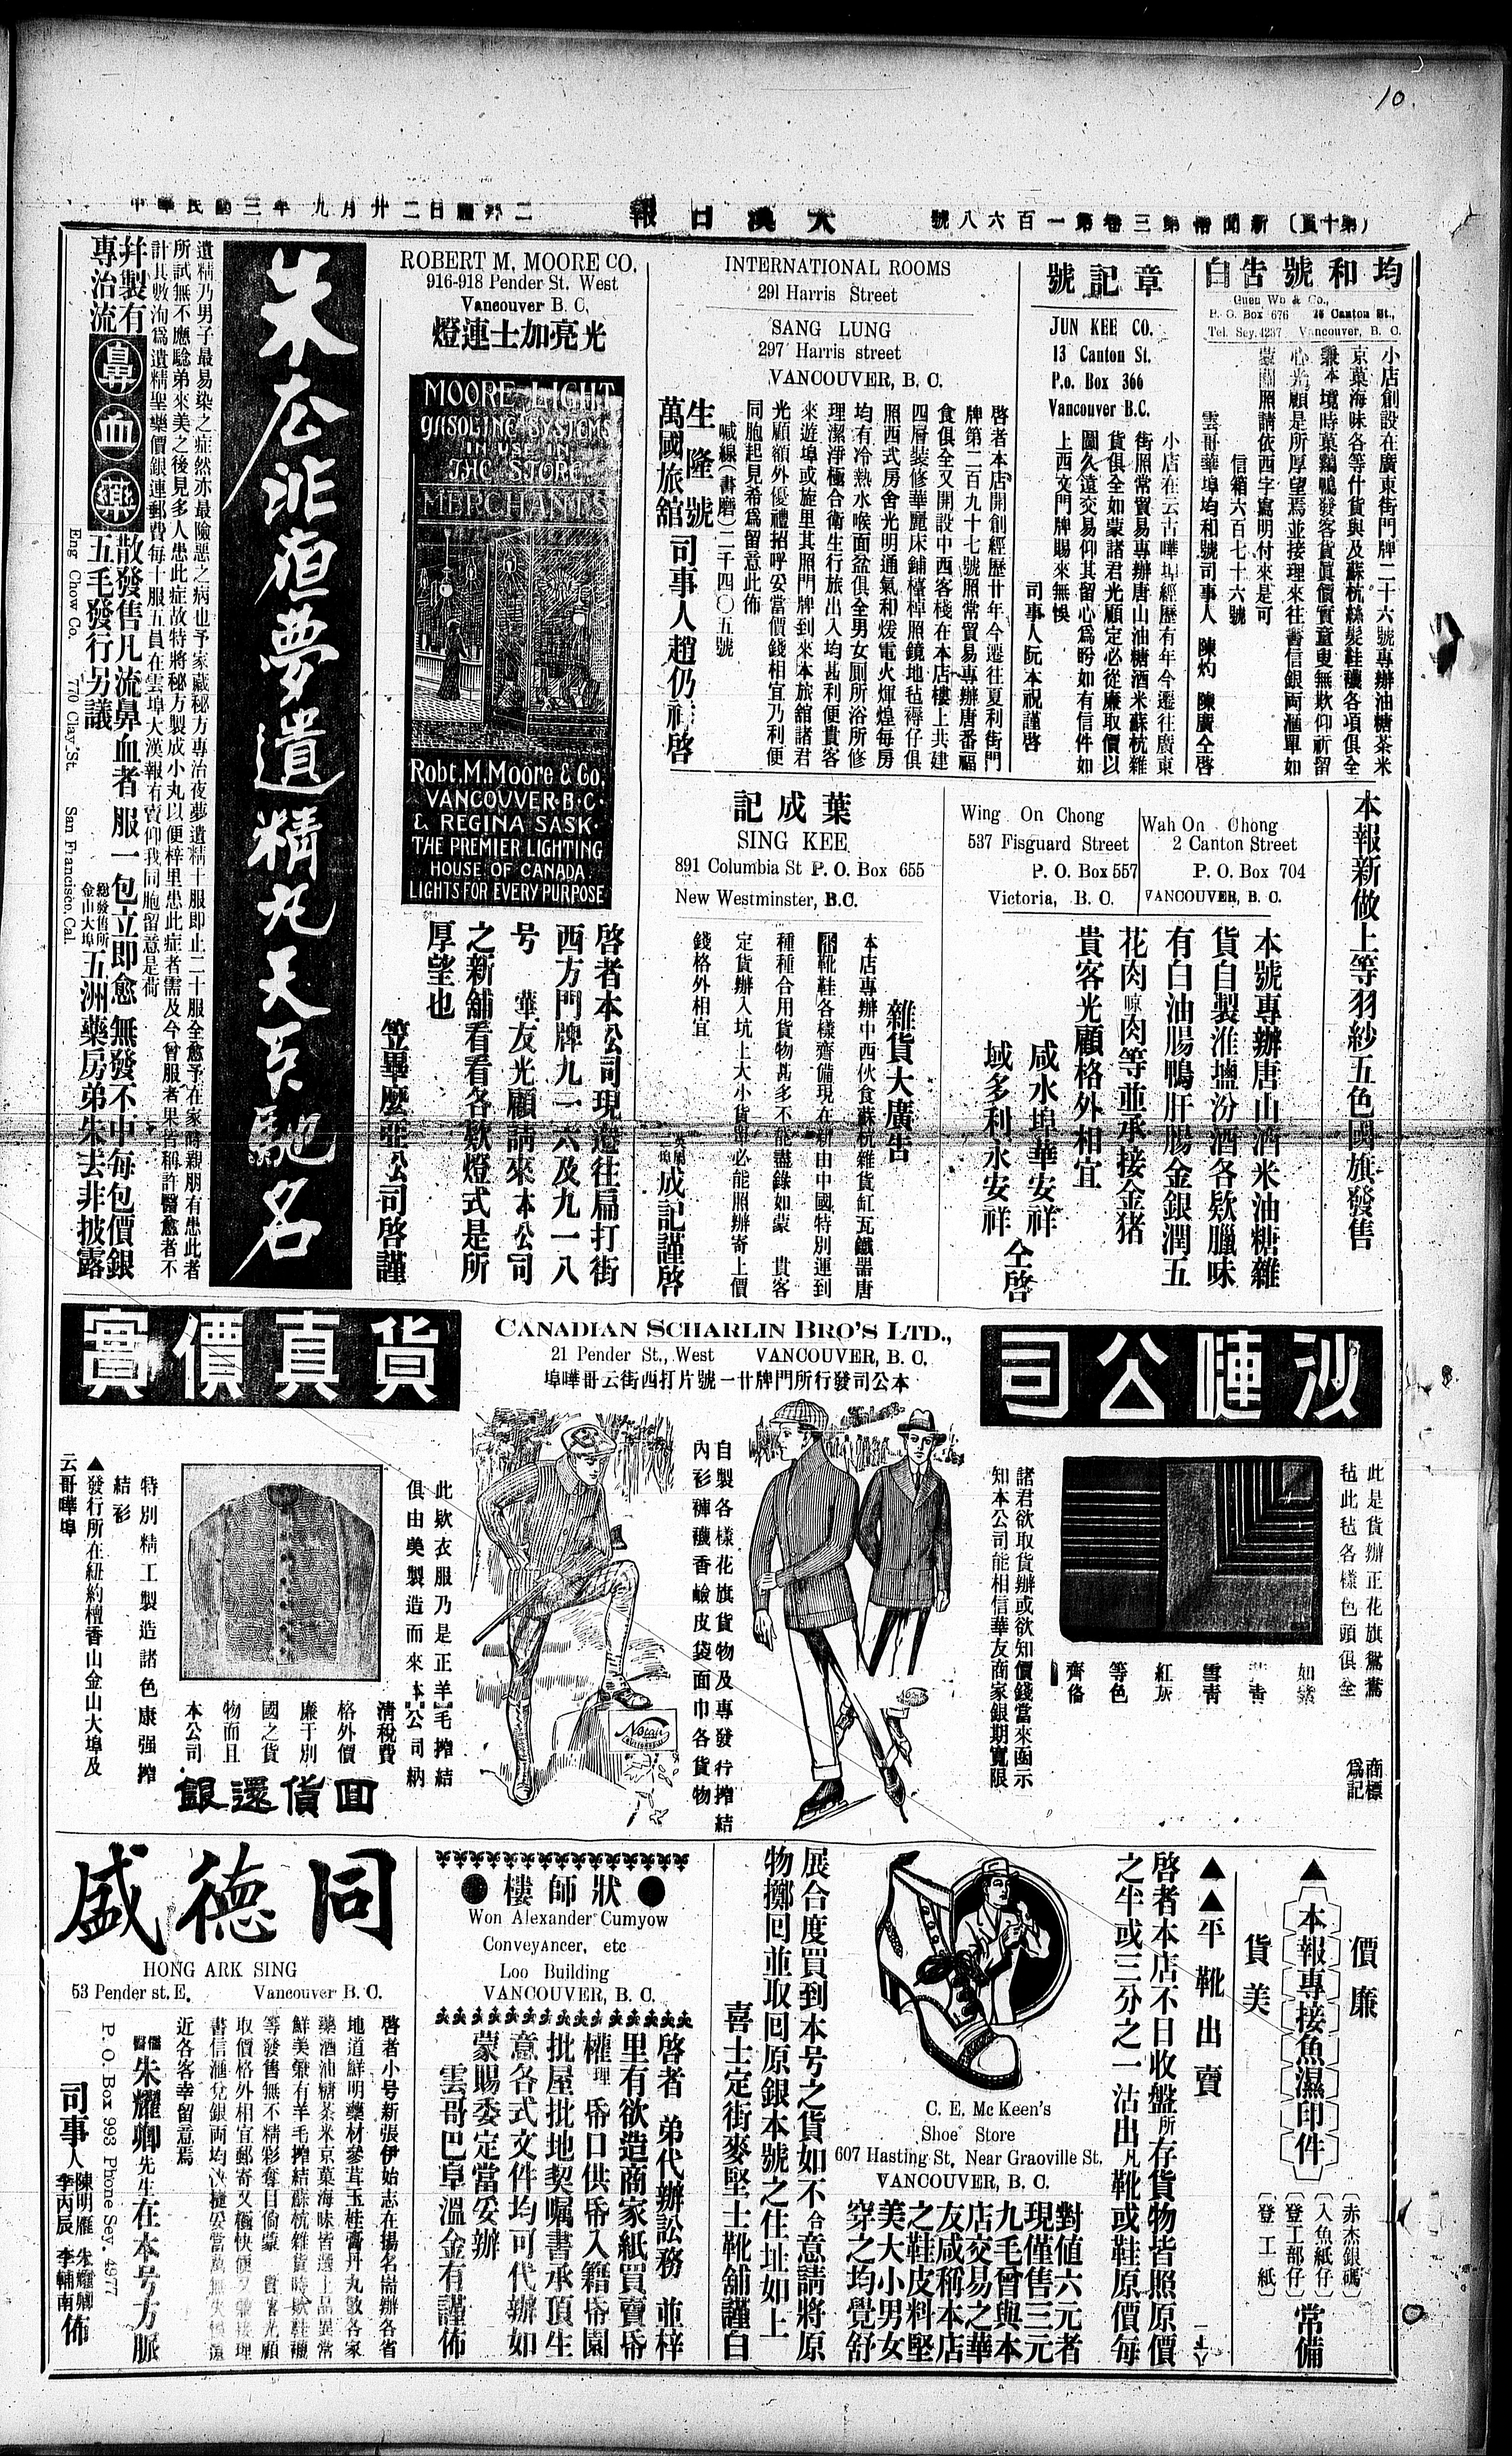 10
（第十頁）新聞帋第三卷第一百六八號
大漢日報
中華民國三年九月廿二日禮拜二
均和號告白
Guen Wo & Co.,
P. O. Box 676 26 Canton St.,
Tel. Sey. 4237 Vancouver, B. C.
小店創設在廣東街門牌二十六號專辦油糖茶米
京菓海味各等什貨與及蘇杭絲髮鞋襪各項俱全
兼本境時菓鷄鴨發客貨眞價實童叟無欺仰祈留
心光顧是所厚望焉並接理來往書信銀両滙單如
蒙關照請依西字寫明付來是可
信箱六百七十六號
雲哥華埠均和號司事人 陳灼 陳廣仝啓
章記號
JUN KEE CO.
13 Canton St.
P.o. Box 366
Vancouver B.C.
小店在云古嘩埠經歷有年今遷往廣東
街照常貿易專辦唐山油糖酒米蘇杭雜
貨俱全如蒙諸君光顧定必從廉取價以
圖久遠交易仰其留心爲盼如有信件如
上西文門牌賜來無悞
司事人阮本祝謹啓
INTERNATIONAL ROOMS
291 Harris Street
SANG LUNG
297 Harris street
VANCOUVER, B. C.
啓者本店開創經歷廿年今遷往夏利街門
牌第二百九十七號照常貿易專辦唐番福
食俱全又開設中西客棧在本店樓上共建
四層裝修華麗床鋪檯椅照鏡地毡褥仔俱
照西式房舍光明通氣和煖電火輝煌每房
均有冷熱水喉面盆俱全男女厠所浴所修
理潔淨極合衛生行旅出入均甚利便貴客
來遊埠或旋里其照門牌到來本旅舘諸君
光顧額外優禮招呼妥當價錢相宜乃利便
同胞起見希爲留意此佈
喊線(書磨)二千四〇五號
生隆號
萬國旅舘
司事人趙仍祥啓
ROBERT M. MOORE CO.
916-918 Pender St. West
Vancouver B. C.
光亮加士連燈
MOORE LIGHT
GASOLINE SYSTEMS
IN USE IN
THE STORE
MERCHANTS
Robt. M. Moore & Co.
VANCOUVER·B·C·
& REGINA SASK·
THE PREMIER LIGHTING
HOUSE OF CANADA.
LIGHTS FOR EVERY PURPOSE
啓者本公司現遷往扁打街
西方門牌九一六及九一八
号 華友光顧請來本公司
之新舖看看各欵燈式是所
厚望也
笠畢麼亞公司啓謹
朱広非夜夢遺精丸天下馳名
遺精乃男子最易染之症然亦最險惡之病也予家藏秘方專治夜夢遺精十服即止二十服全愈予在家時親朋有患此者
所試無不應騐弟來美之後見多人患此症故特將秘方製成小丸以便梓里患此症者需及今曾服者果皆稱許醫愈者不
計其數洵爲遺精聖藥價銀連郵費每十服五員在雲埠大漢報有賣仰我同胞留意是荷
并製有
專治流
鼻血藥
散發售凡流鼻血者服一包立即愈無發不中每包價銀
五毛發行另議
總發售所
金山大埠
五洲藥房弟朱去非披露
Eng Chow Co. 770 Clay St. San Francisco, Cal.
本報新做上等羽紗五色國旗發售
Wah On Chong
2 Canton Street
P. O. Box 704
VANCOUVER, B. C.
Wing On Chong
537 Fisguard Street
P. O. Box 557
Victoria, B. C.
本號專辦唐山酒米油糖雜
貨自製淮鹽汾酒各欵臘味
有白油腸鴨肝腸金銀潤五
花肉晾肉等並承接金猪
貴客光顧格外相宜
咸水埠華安祥
域多利永安祥
仝啓
葉成記
SING KEE
891 Columbia St P. O. Box 655
New Westminster, B.C.
雜貨大廣告
本店專辦中西伙食蘇杭雜貨缸瓦鐵器唐
靴鞋各樣齊備現在新由中國特別運到
種種合用貨物甚多不能盡錄如蒙 貴客
定貨辦入坑上大小貨單必能照辦寄上價
錢格外相宜
成記謹啓
沙嗹公司
CANADIAN SCHARLIN BRO'S LTD.,
21 Pender St., West VANCOUVER, B. C.
本公司發行所門牌廿一號片打西街云哥嘩埠
貨真價實
此是貨辦正花旗鴛鴦
毡此毡各樣色頭俱全
如紫
雪青
紅灰
等色
齊俻
商標
爲記
諸君欲取貨辦或欲知價錢當來函示
知本公司能相信華友商家銀期寬限
自製各樣花旗貨物及專發行搾結
內衫褲襪香鹼皮袋面巾各貨物
Notair
此欵衣服乃是正羊毛搾結
俱由美製造而來本公司納
清稅費
格外價
廉于別
國之貨
物而且
本公司
囬貨還銀
特別精工製造諸色康强搾
結衫
▲發行所在紐約檀香山金山大埠及
云哥嘩埠
價廉
▲本報專接魚濕印件
貨美
(赤杰銀碼)
(入魚紙仔)
(登工部仔)
(登工紙)
常備
▲▲平靴出賣
啓者本店不日收盤所存貨物皆照原價
之半或三分之一沽出凡靴或鞋原價每
C. E. Mc Keen's
Shoe Store
607 Hasting St, Near Graoville St,
VANCOUVER, B. C.
對値六元者
現僅售三元
九毛曾與本
店交易之華
友咸稱本店
之鞋皮料堅
美大小男女
穿之均覺舒
展合度買到本号之貨如不合意請將原
物擲囘並取囘原銀本號之住址如上
喜士定街麥堅士靴舖謹白
狀師樓
Won Alexander Cumyow
Conveyancer, etc
Loo Building
VANCOUVER, B. C.
啓者 弟代辦訟務 並梓
里有欲造商家紙買賣帋
權理帋口供帋入籍帋園
批屋批地契嘱書承頂生
意各式文件均可代辦如
蒙賜委定當妥辦
雲哥巴阜溫金有謹佈
同德盛
HONG ARK SING
53 Pender st. E, Vancouver B. C.
啓者小号新張伊始志在揚名耑辦各省
地道鮮明藥材參茸玉桂膏丹丸散各家
藥酒油糖茶米京菓海味皆選上品異常
鮮美兼有羊毛搾結蘇杭雜貨時欵鞋襪
等發售無不精彩奪目倘蒙 貴客光顧
取價格外相宜郵寄又極快便又兼接理
書信滙兌銀両均
近各客幸留意焉
儒醫朱耀卿先生在本号方脈
P. O. Box 993 Phone Sey. 4977
司事人
陳明雁 朱耀卿
李丙辰 李輔南
佈